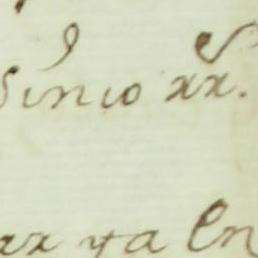 sinio xx.
xx ya En